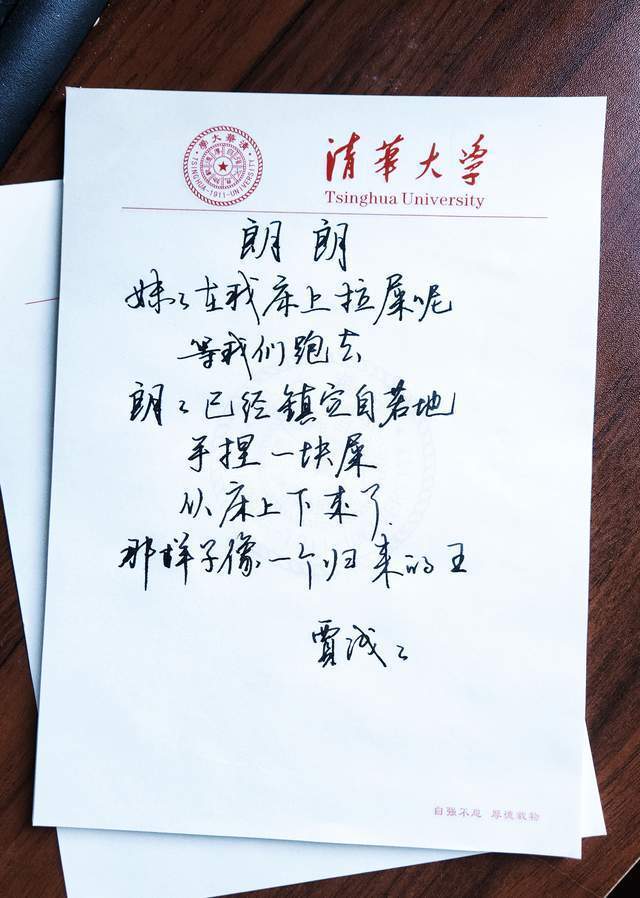 清華大學
TSINGHUA UNIVERSITY
-1911-
清華大学
Tsinghua University
朗朗
妹々在我床上拉屎呢
等我们跑去
朗々已经镇定自若地
手捏一块屎
从床上下来了
那样子像一个归来的王
贾浅々
自强不息 厚德载物